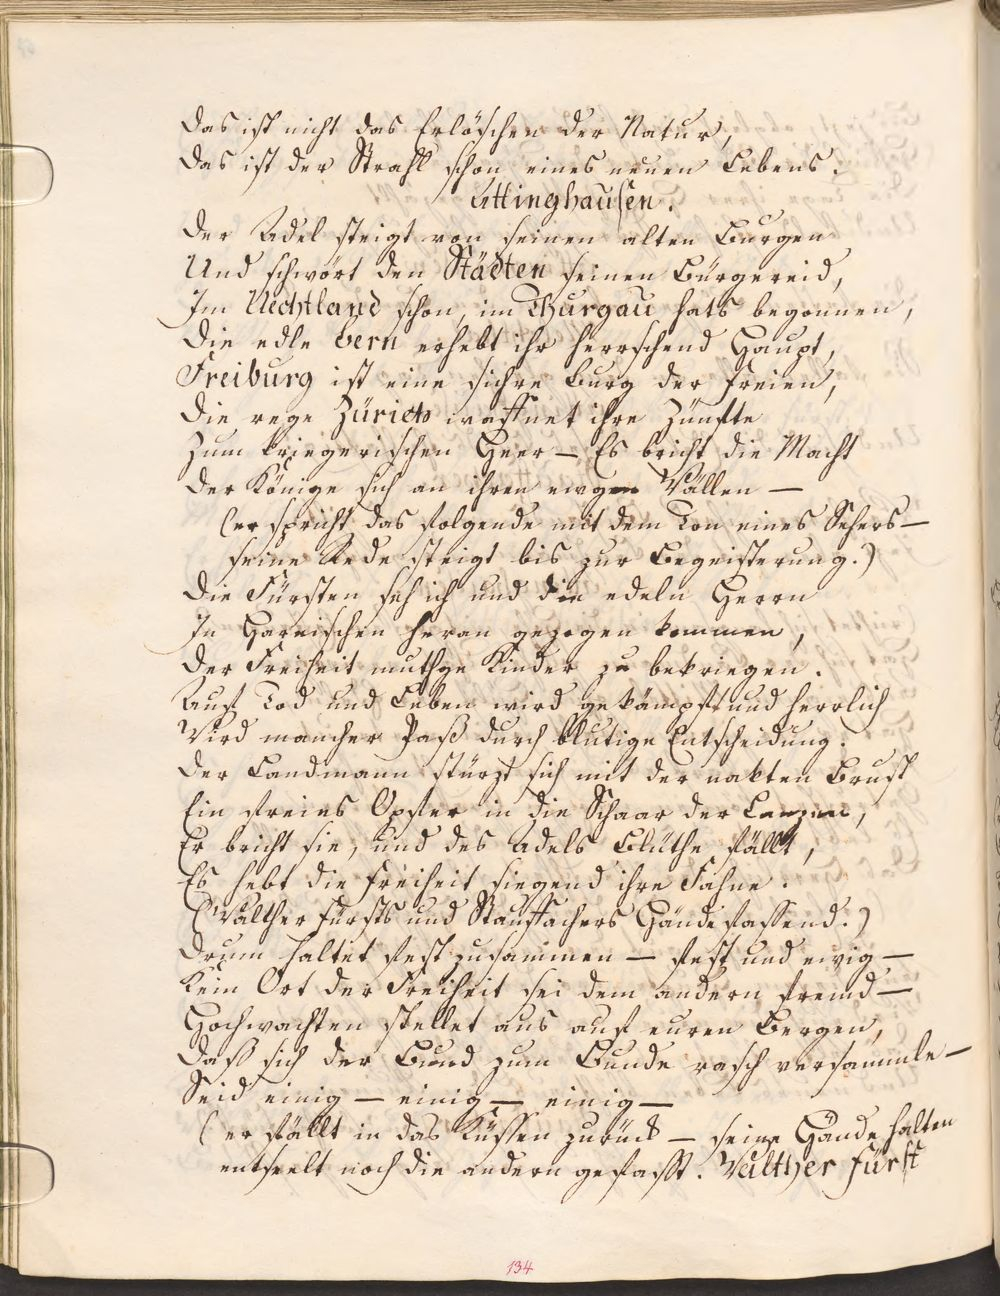 Das ist nicht das Erlöschen der Natur,
Das ist der Strahl schon eines neuen Lebens.
Attinghausen.
Der Adel steigt von seinen alten Burgen
Und schwört den Städten seinen Bürgereid,
Im Uechtland schon, im Thurgau hats begonnen,
Die edle Bern erhebt ihr herrschend Haupt,
Freiburg ist eine sichre Burg der Freien,
Die rege Zürich waffnet ihre Zünfte
Zum kriegerischen Heer – Es bricht die Macht
Der Könige sich an ihren ewgen Wällen –
(er spricht das folgende mit dem Ton eines Sehers –
seine Rede steigt bis zur Begeisterung.)
Die Fürsten seh ich und die edeln Herrn
In Harnischen heran gezogen kommen,
Der Freiheit muthge Kinder zu bekriegen.
Auf Tod und Leben wird gekämpft und herrlich
Wird mancher Paß durch blutige Entscheidung.
Der Landmann stürzt sich mit der nakten Brust
Ein freies Opfer in die Schaar der Lanzen,
Er bricht sie, und des Adels Blüthe fällt,
Es hebt die Freiheit siegend ihre Fahne.
(Walther Fürsts und Stauffachers Hände fassend.)
Drum haltet fest zusammen – fest und ewig –
Kein Ort der Freiheit sei dem andern fremd –
Hochwachten stellet aus auf euren Bergen,
Daß sich der Bund zum Bunde rasch versammle –
Seid einig – einig – einig –
(er fällt in das Küssen zurück – seine Hände halten
entseelt noch die andern gefasst. Walther Fürst
134